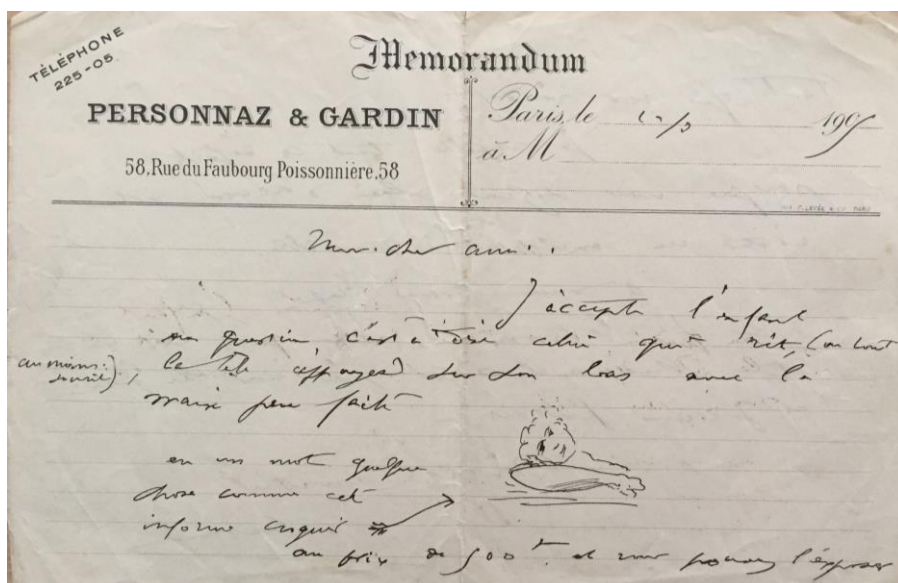 TÉLÉPHONE
225-05.
Memorandum
PERSONNAZ & GARDIN
58, Rue du Faubourg Poissonnière. 58
Paris, le 190
à M
Mon cher ami.
J'accepte l'enfant
en question c'est à dire celui qui rit, (ou tout
au moins sourit),
la tête appuyée sur son bras avec la
main peu faite
en un mot quelque
chose comme cet
informe croquis
au prix de 500 f. et vous pouvez l'exposer